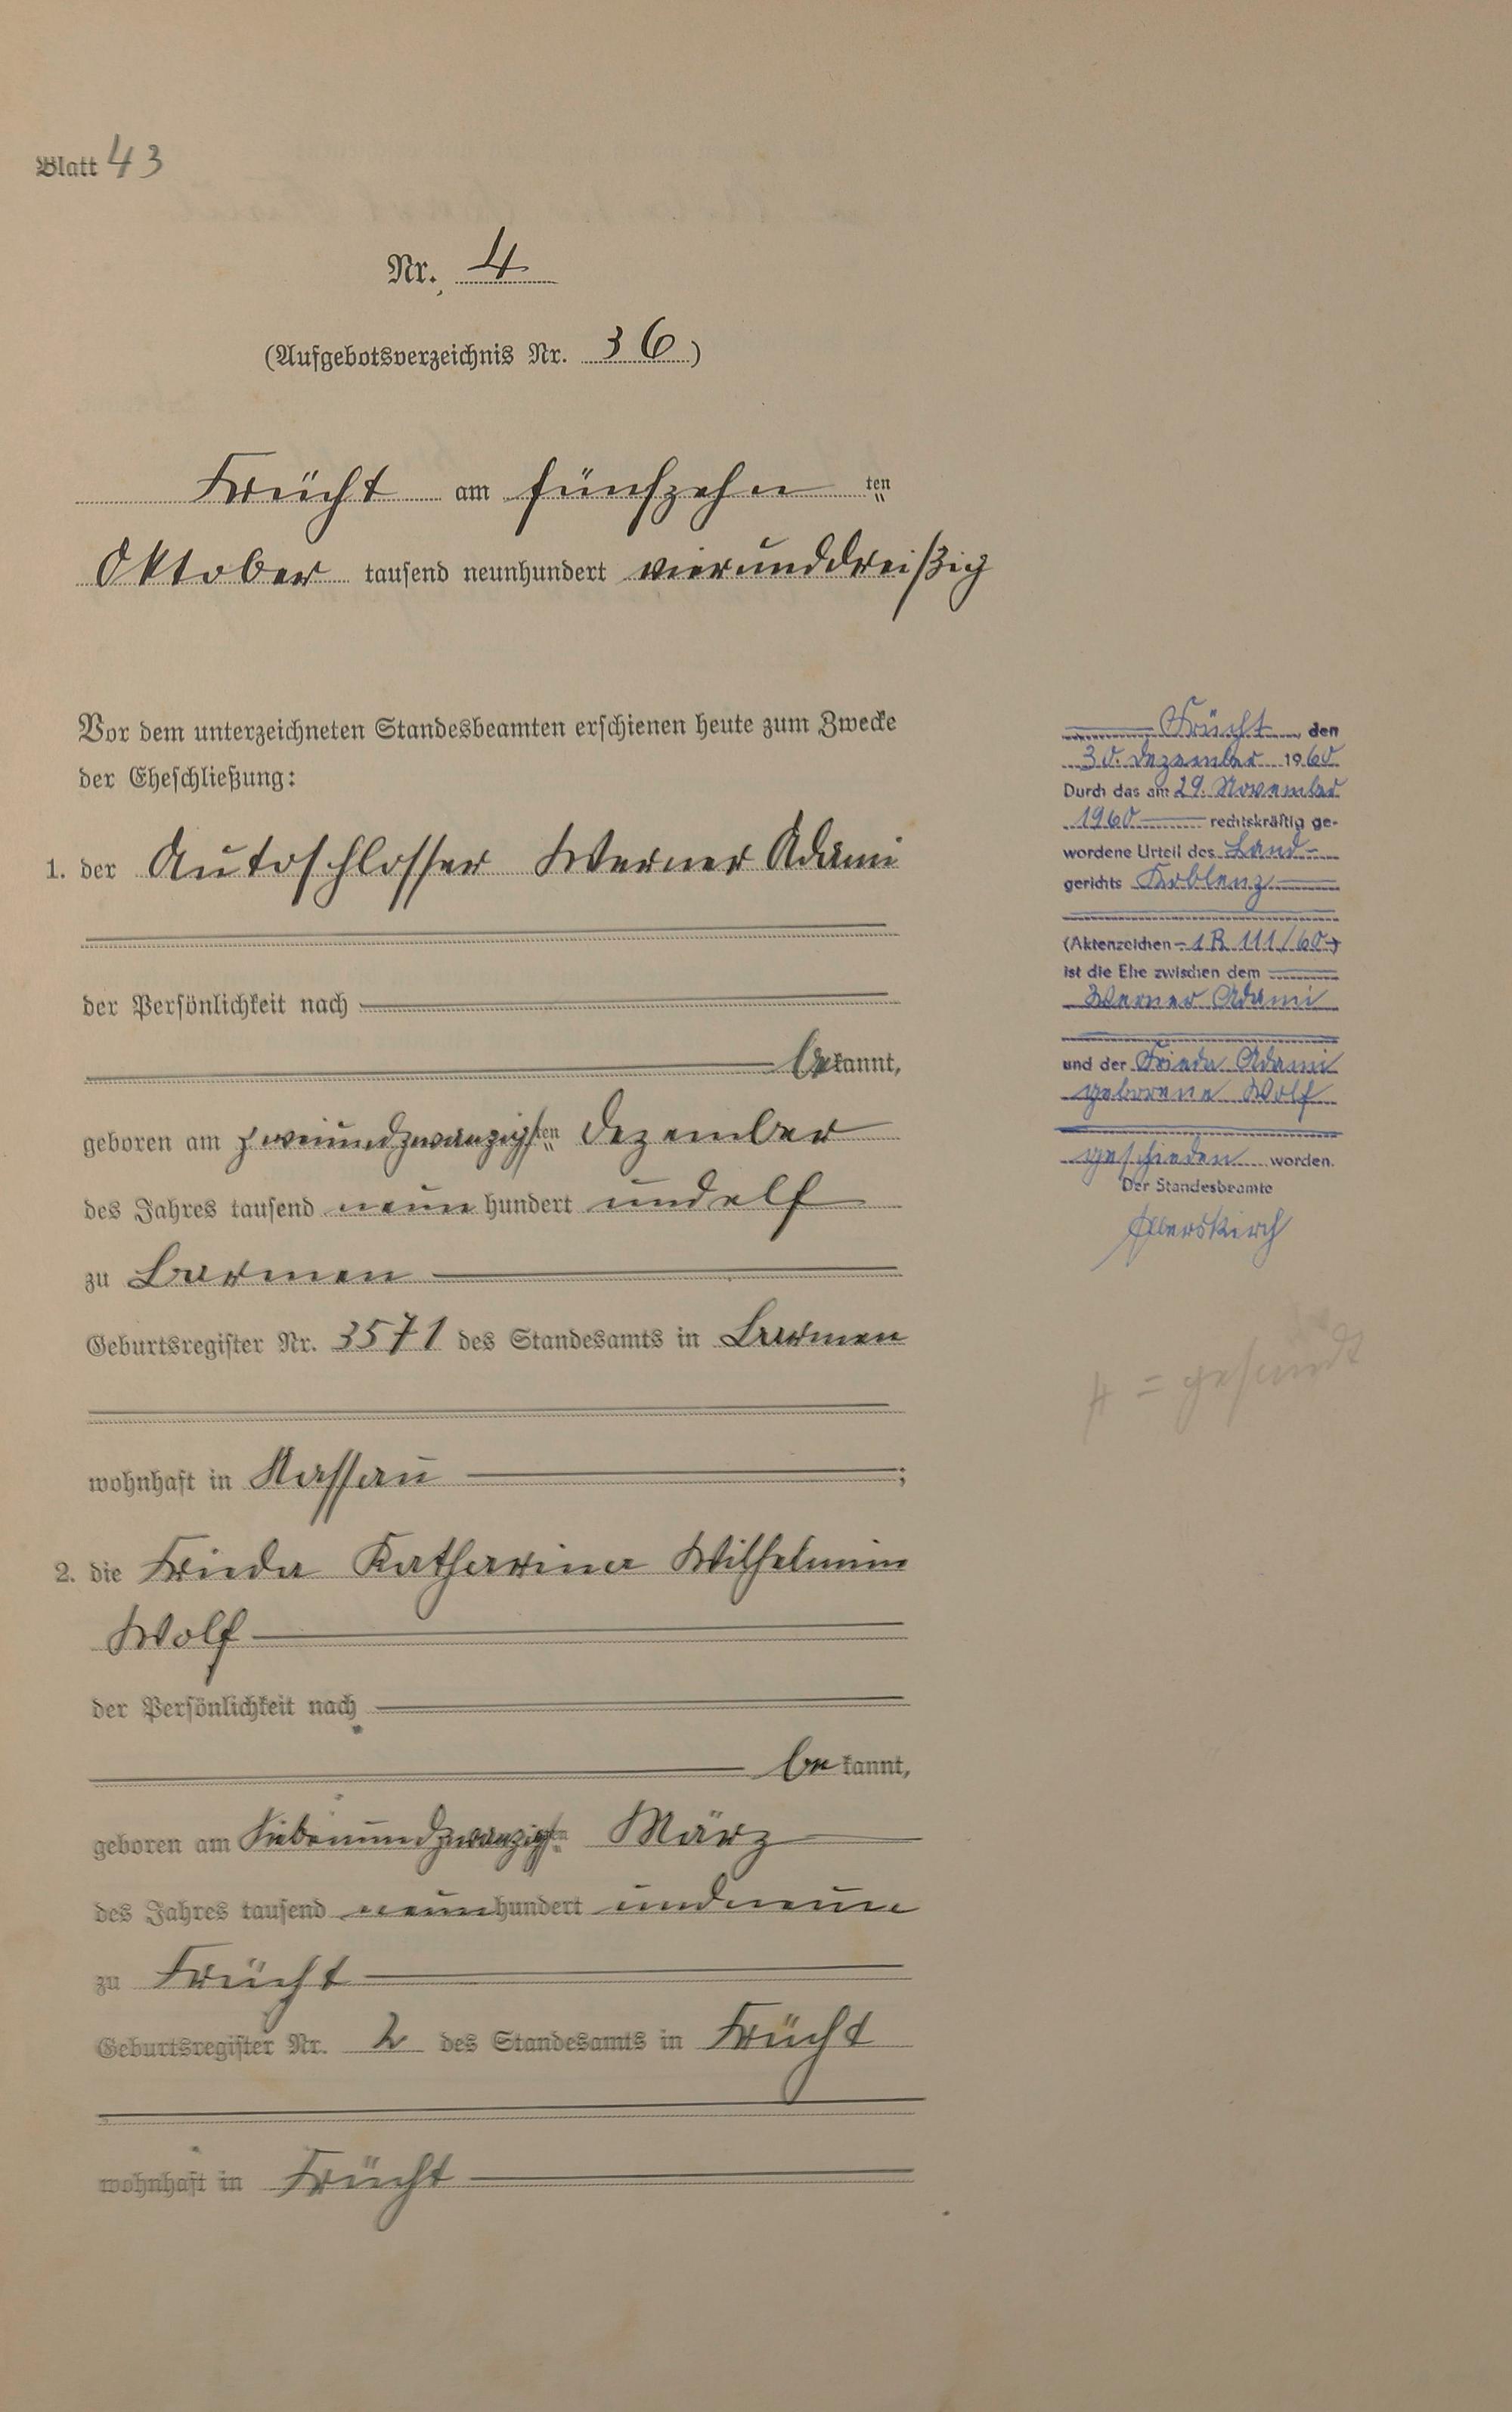 Blatt 43
Nr. 4
(Aufgebotsverzeichnis Nr. 36)
Frücht am fünfzehn ten
Oktober tausend neunhundert vierunddreißig
Vor dem unterzeichneten Standesbeamten erschienen heute zum Zwecke
der Eheschließung:
1. der Autoschlosser Werner Adami
der Persönlichkeit nach
bekannt,
geboren am zweiundzwanzigsten Dezember
des Jahres tausend neunhundert undelf
zu Barmen
Geburtsregister Nr. 3571 des Standesamts in Barmen
wohnhaft in Nassau ;
2. die Frieda Katharina Wilhelmine
Wolf
der Persönlichkeit nach
bekannt,
geboren am siebenundzwanzigsten März
des Jahres tausend neunhundert undneun
zu Frücht
Geburtsregister Nr. 2 des Standesamts in Frücht
wohnhaft in Frücht
Frücht, den
30. Dezember 1960
Durch das am 29. November
1960 rechtskräftig ge-
wordene Urteil des Land-
gerichts Koblenz
(Aktenzeichen - 1 R 111/60 -)
ist die Ehe zwischen dem
Werner Adami
und der Frieda Adami
geborene Wolf
geschieden worden.
Der Standesbeamte